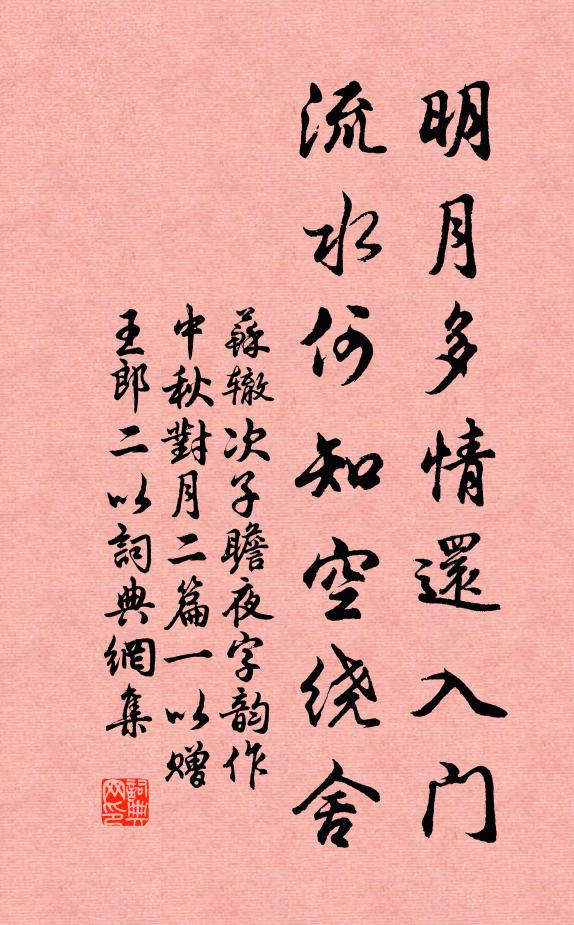 明月多情還入门
流水何知空绕舍
蘇辙次子瞻夜字韵作
中秋對月二篇一以赠
王郎二以詞典網集
詞典网印